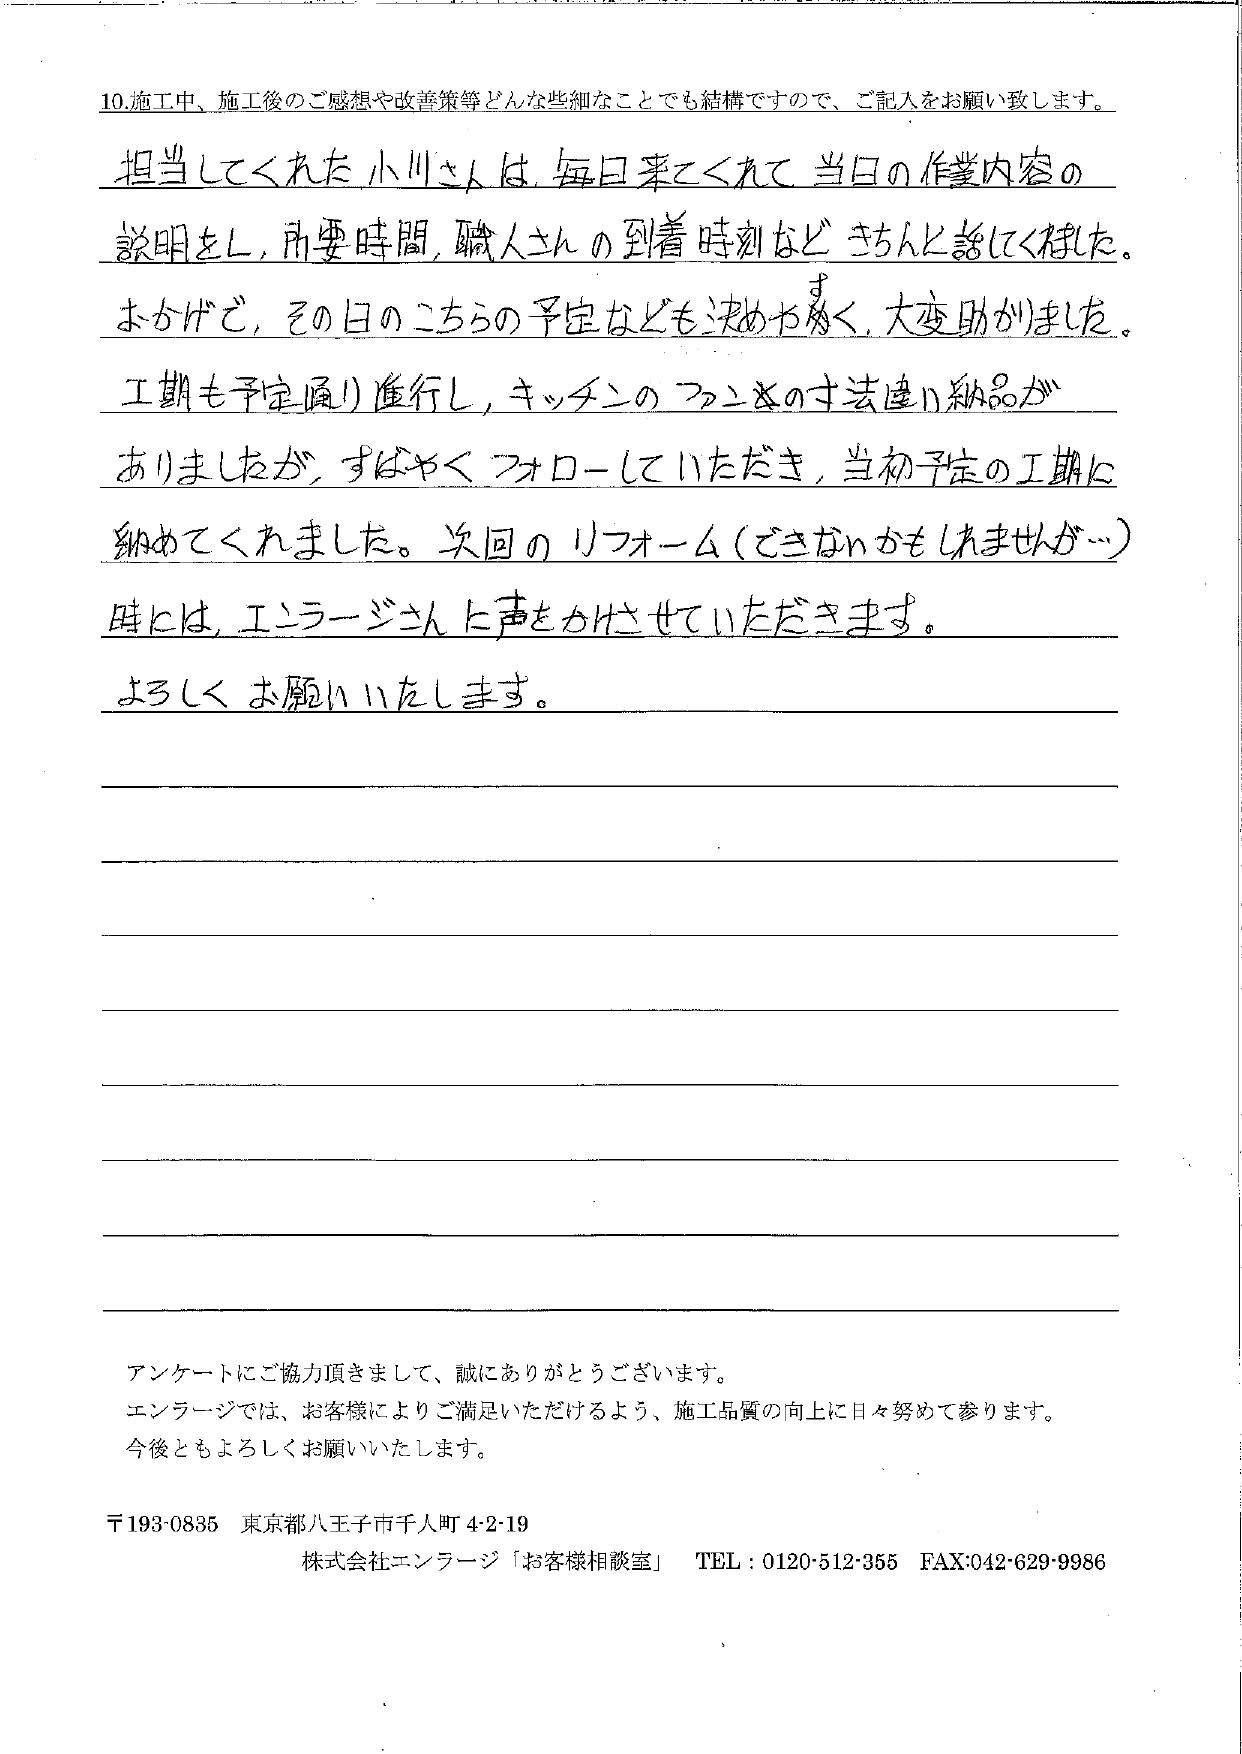 10.施工中、施工後のご感想や改善策等どんな些細なことでも結構ですので、ご記入をお願い致します。
担当してくれた小川さんは、毎日来てくれて当日の作業内容の
説明をし，所要時間，職人さんの到着時刻などきちんと話してくれました。
おかげで，その日のこちらの予定なども決めやすく，大変助かりました。
工期も予定通り進行し，キッチンのファンの寸法違い納品が
ありましたが，すばやくフォローしていただき，当初予定の工期に
納めてくれました。次回のリフォーム(できないかもしれませんが…)
時には，エンラージさんに声をかけさせていただきます。
よろしくお願いいたします。
アンケートにご協力頂きまして、誠にありがとうございます。
エンラージでは、お客様によりご満足いただけるよう、施工品質の向上に日々努めて参ります。
今後ともよろしくお願いいたします。
〒193-0835 東京都八王子市千人町 4-2-19
株式会社エンラージ「お客様相談室」 TEL：0120-512-355 FAX:042-629-9986